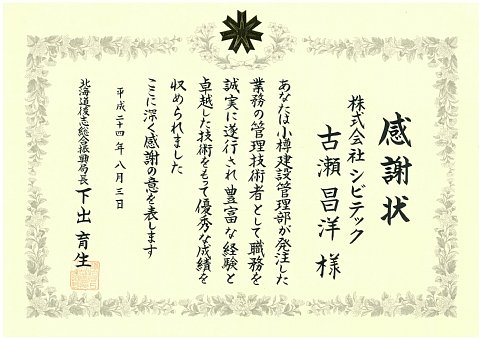 感謝状
株式会社 シビテック
古瀬昌洋 様
あなたは小樽建設管理部が発注した
業務の管理技術者として職務を
誠実に遂行され豊富な経験と
卓越した技術をもって優秀な成績を
収められました
ここに深く感謝の意を表します
平成二十四年八月三日
北海道後志総合振興局長 下出育生